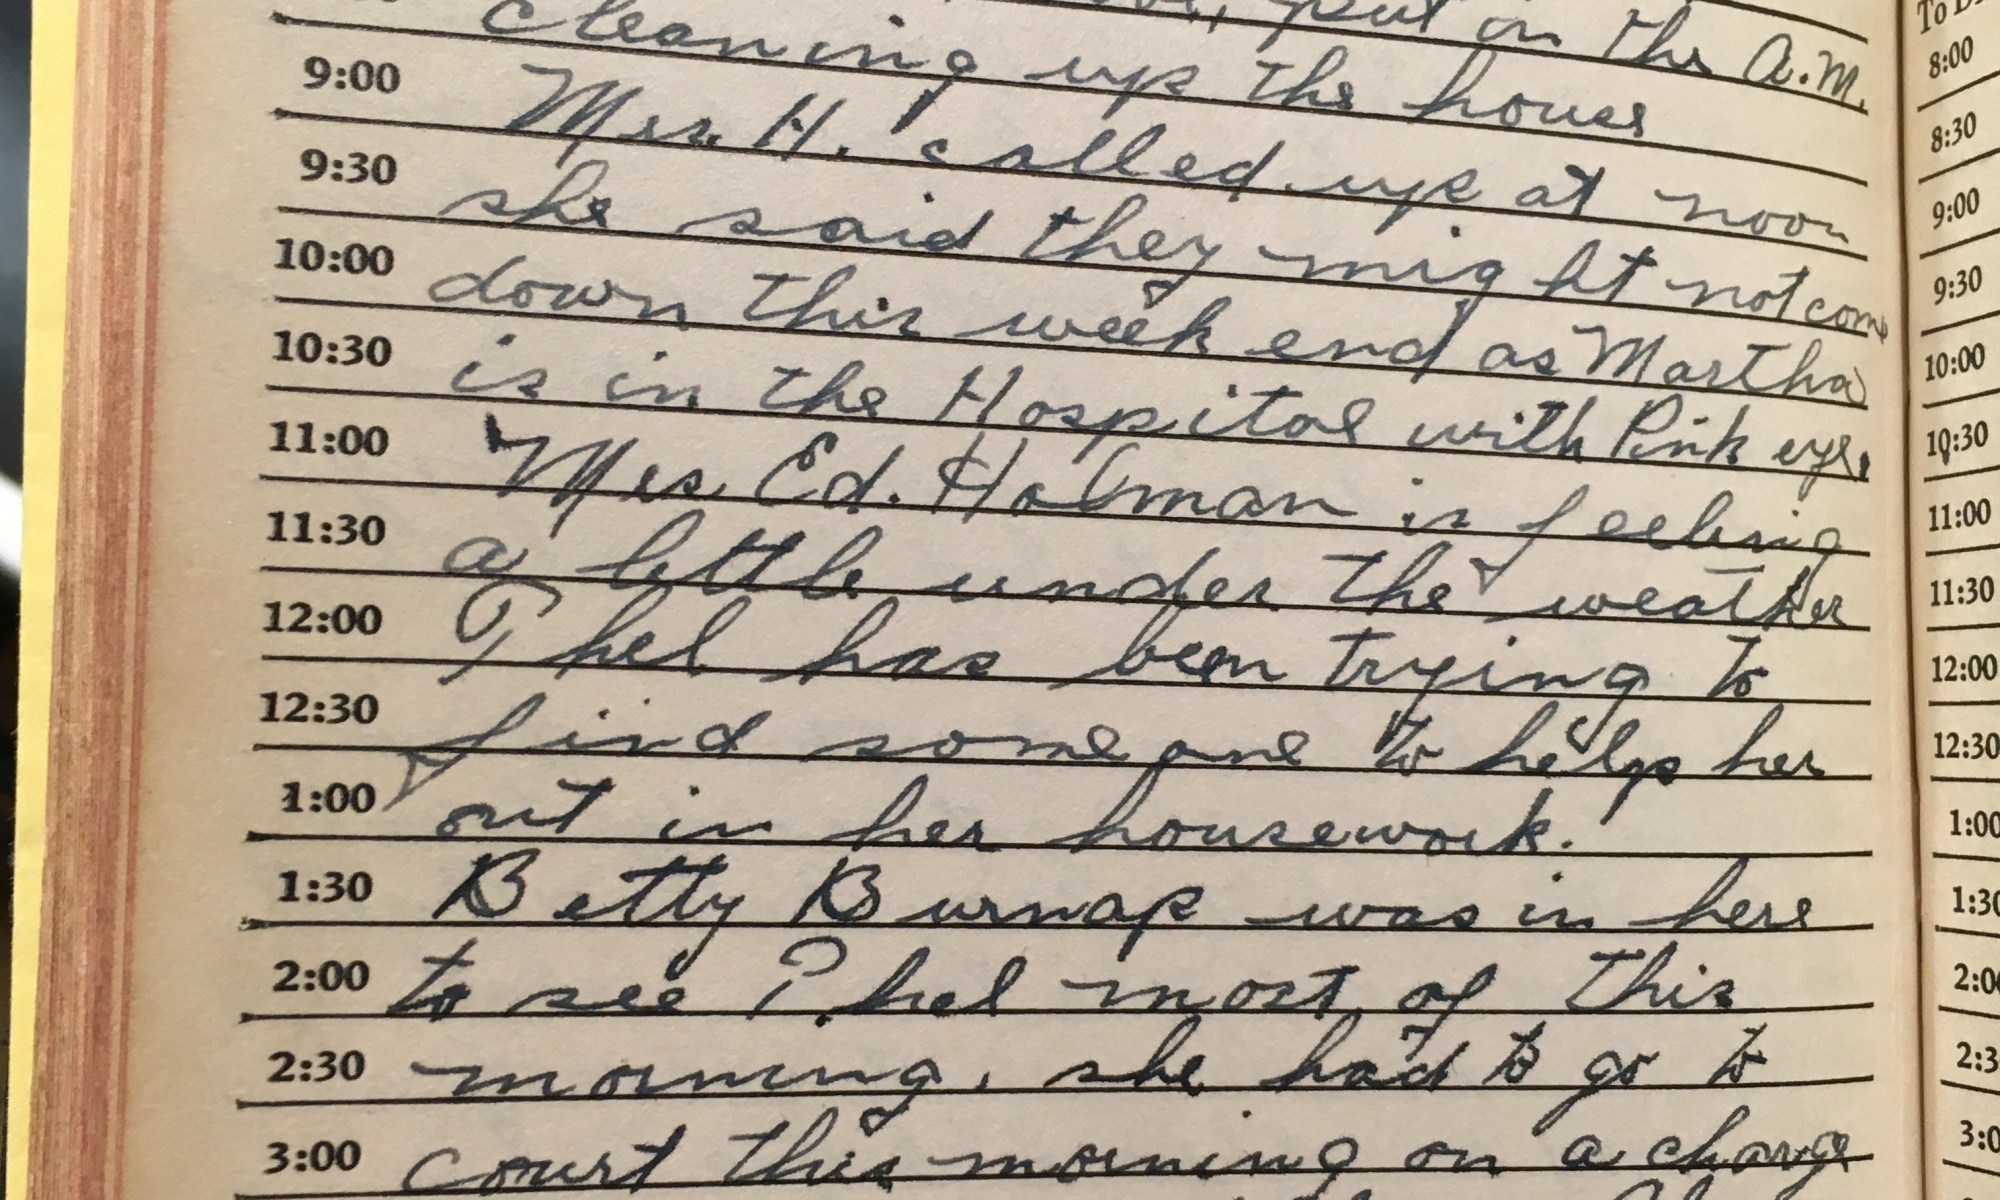 put in the A.M.
cleaning up the house
9:00 Mrs. H. called up at noon
9:30 she said they might not come
10:00 down this week end as Martha
10:30 is in the Hospital with Pink eye.
11:00 Mrs Ed. Holman is feeling
11:30 a little under the weather
12:00 Phel has been trying to
12:30 find some one to help her
1:00 out in her housework.
1:30 Betty Burnap was in here
2:00 to see Phel most of this
2:30 morning. she had to go to
3:00 court this morning on a charge
8:00
8:30
9:00
9:30
10:00
10:30
11:00
11:30
12:00
12:30
1:00
1:30